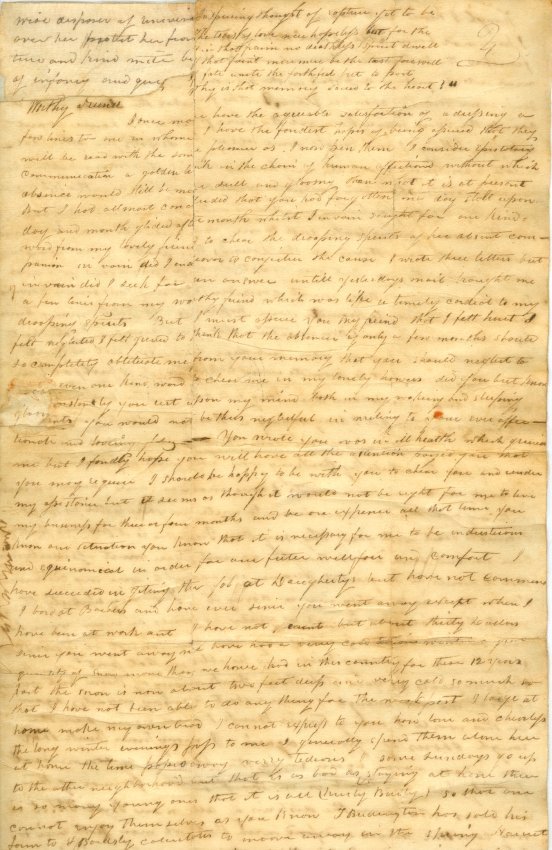 2
wise disposer of
over her protect her from
time and kind
of infancy and
inspiring thought of rapture yet to be
the tears of love were hopeless but for thee
if in that frame no deathless spirit dwell
If that faint murmur be the last farewell
If fate unite the faithful but to part
Why is their memory sacred to the heart
Worthy Friend
I once more have the agreeable satisfaction of addressing a
few lines to one in whom I have the fondest hopes of being assured that they
will be read with the same pleasure as I now pen them I consider epistolary
communication a golden link in the chain of human affections without which
absence would still be more dull and gloomy than what it is at present
But I had almost concluded that you had forgotten me day roll upon
day and month glided after month whilst I in vain sought for one kind
word from my lovely friend to chear the drooping spirits of her absent com-
panion in vain did I endeavor to conjecture the cause I wrote three letters but
in vain did I seek for an answer untill yesterdays mail brought me
a few lines from my worthy friend which was like a timely cordial to my
drooping spirits But I must assure you my friend that I felt hurt I
felt neglected I felt greived to think that the absence of only a few months should
so completely obliterate me from your memory that you should neglect to
even one kind word to chear me in my lonely hours did you but know
constantly you rest upon my mind both in my waking and sleeping
you would not be thus neglectful in writing to your ever affec-
tionate and loveing You wrote you was in ill health which greived
me but I fondly hope you will have all the attention payed you that
you may require I should be happy to be with you to chear you and render
my assistance but it seems as though it would not be right for me to leave
my business for three or four months and be on expence all that time you
know our situation you know that it is necessary for me to be industrious
and equinomical in order for our futer wellfare and comfort I
have succeeded in geting the job at Daugherty's but have not commenced
I board at Barbers and have ever since you went away except when I
have been at work out I have not but about thirty dollars
since you went away we have had a very cold winter a great
quantity of snow more than we have had in this country for these 12 years
past the snow is now about two feet deep and very cold so much so
that I have not been able to do any thing for the week past I stay at
home make my own bread I cannot express to you how lone and chearless
the long winter evenings pass to me I generally spend them alone here
at home the time passes away very tedious some sundays go up
to the other neighborhood and that is as bad as staying at home there
is so many young ones that it is all so that one
cannot enjoy themselves as you know T has sold his
farm to H Beardsley calculates to move away in the spring Harriet